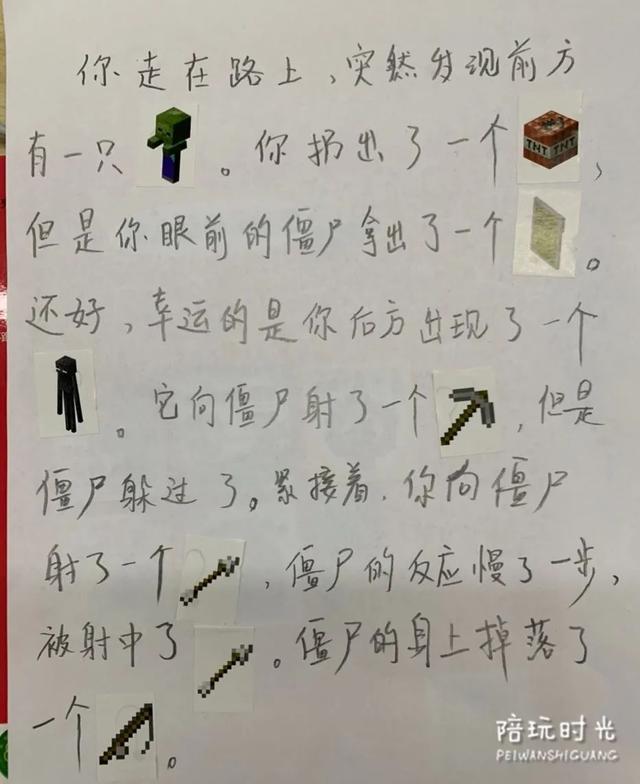 你走在路上,突然发现前方
有一只 。你扔出了一个 TNT TNT ,
但是你眼前的僵尸拿出了一个 。
还好,幸运的是你后方出现了一个
。它向僵尸射了一个 ,但是
僵尸躲过了。紧接着,你向僵尸
射了一个 ,僵尸的反应慢了一步,
被射中了 。僵尸的身上掉落了
一个 。
陪玩时光
PEIWANSHIGUANG